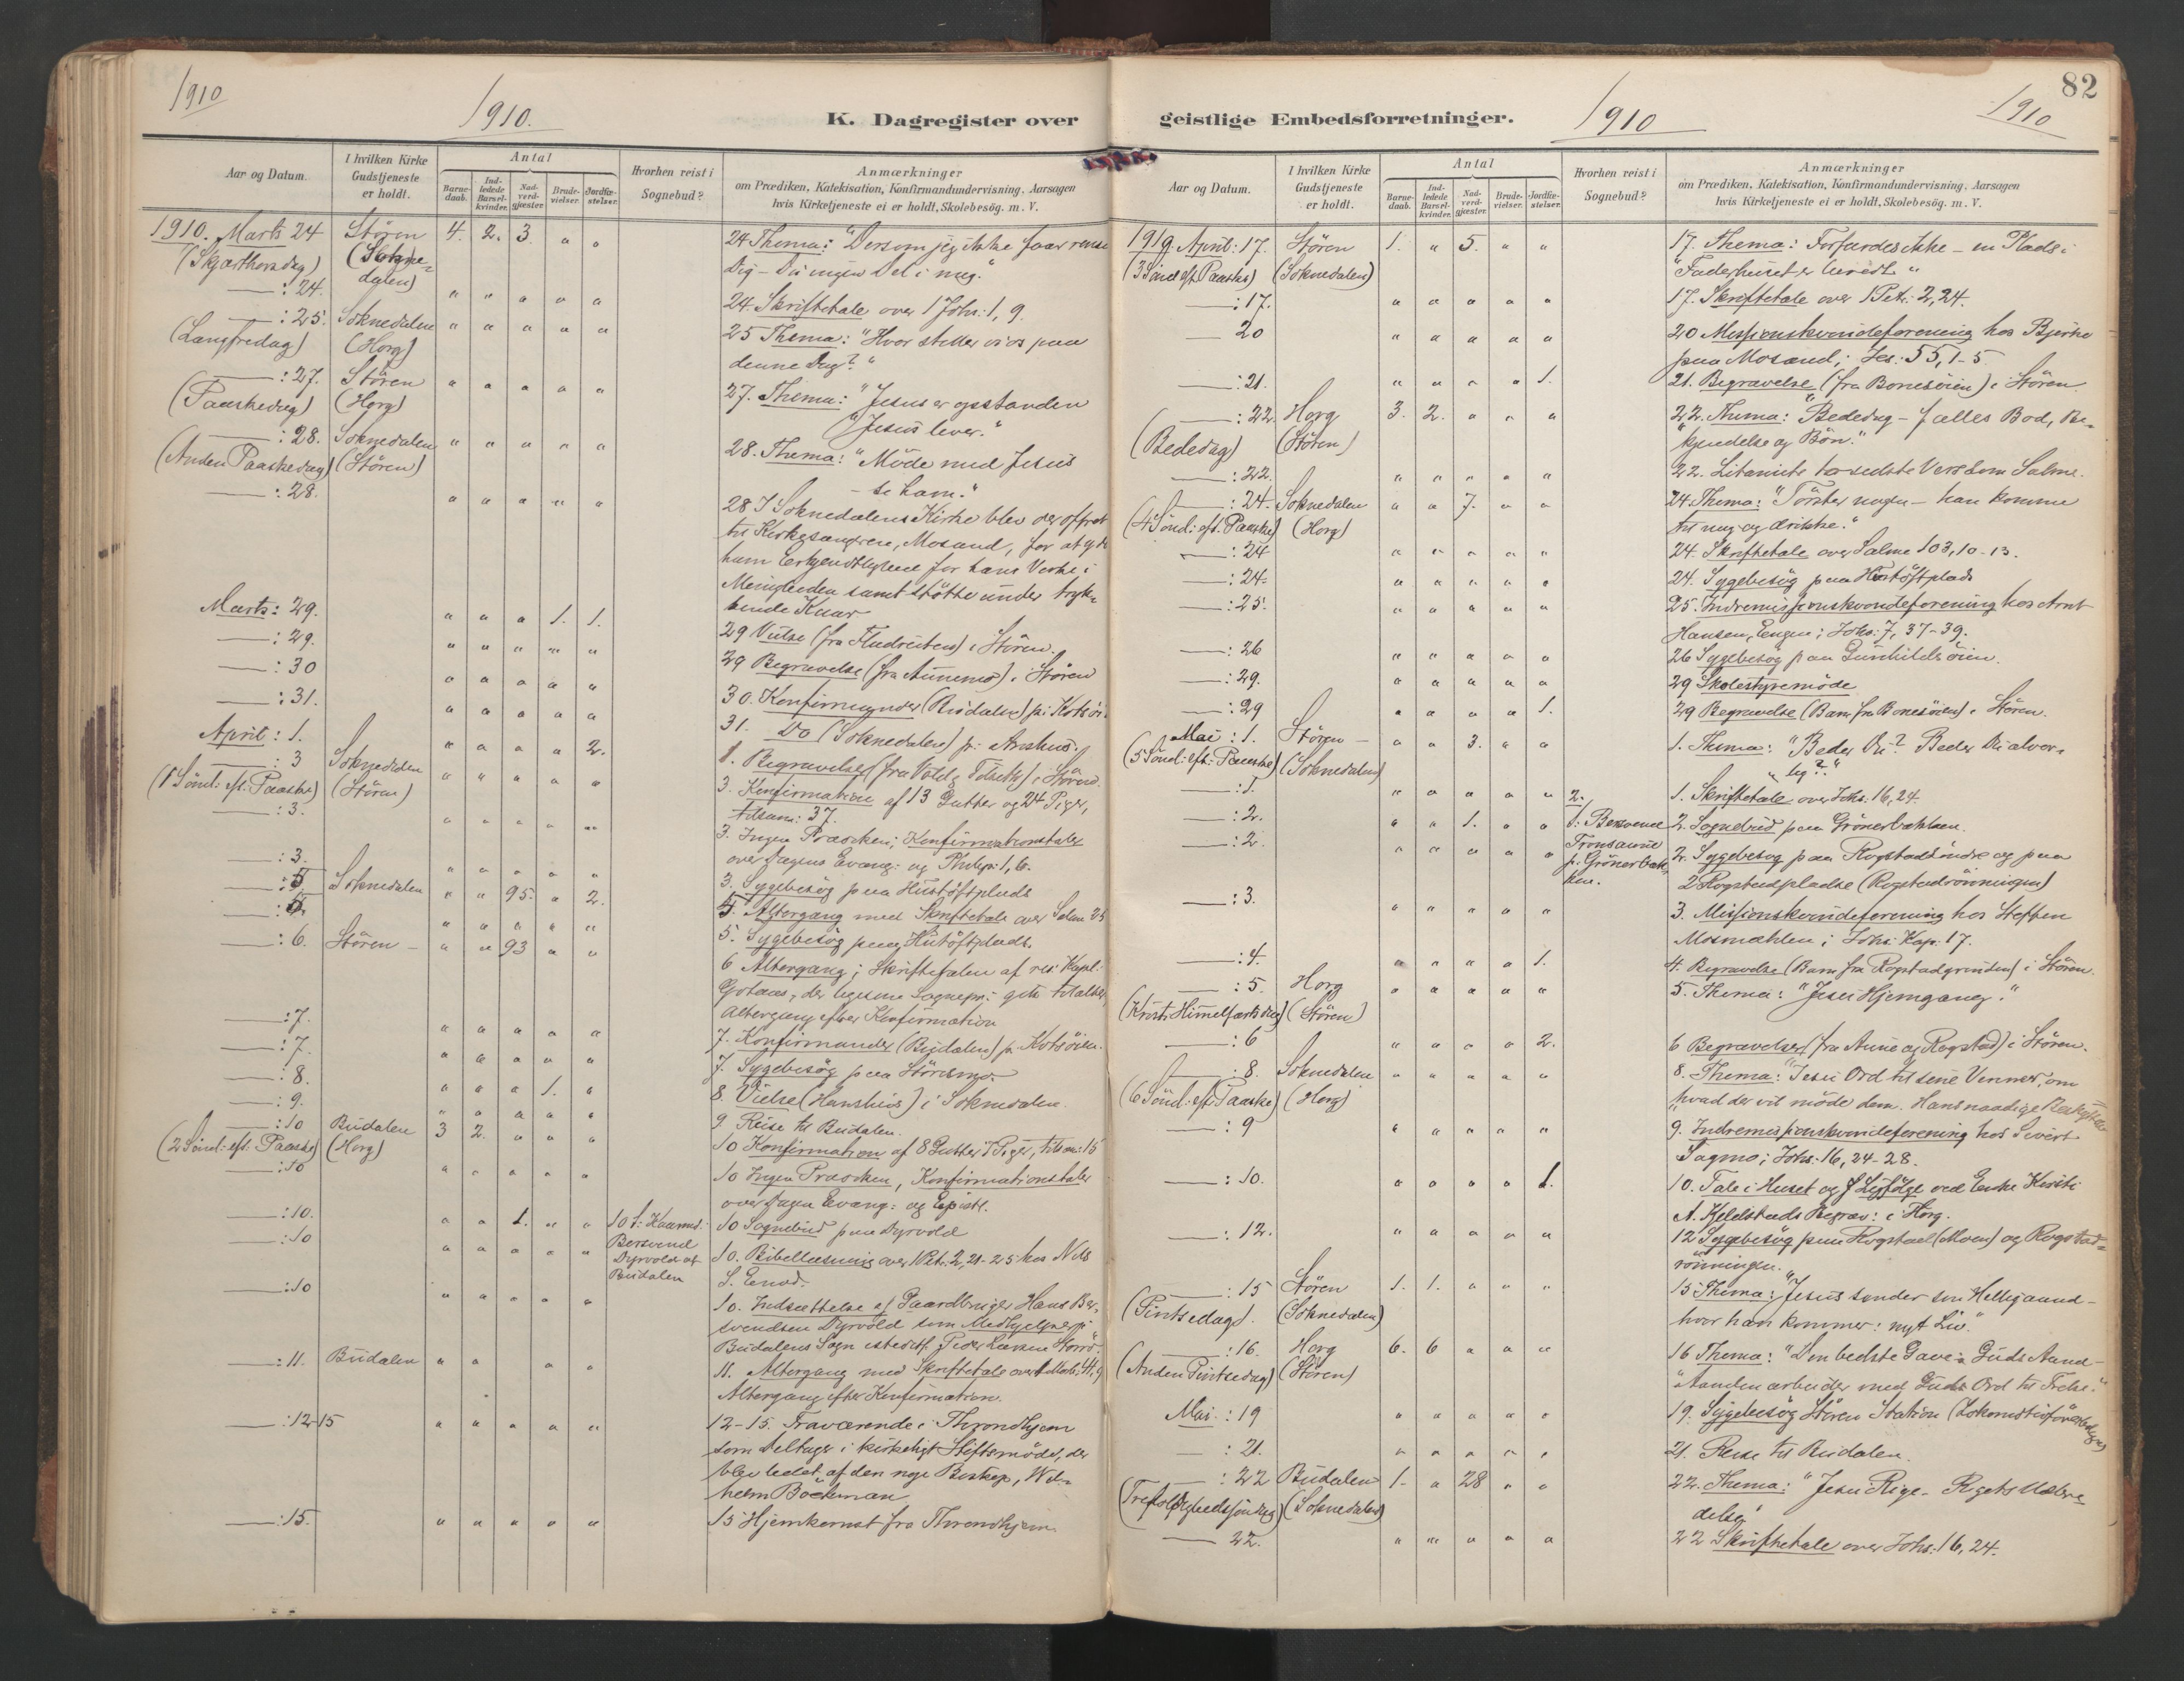 1910
1910.
K. Dagregister over
Aar og Datum.
I hvilken Kirke Gudstjeneste er holdt.
Antal
Barnedaab.
Indledede Barselkvinder.
Nadverdgjæster.
Brudevielser.
Jordfæstelser.
Hvorhen reist i Sognebud?
Anmærkninger
om Prædiken, Katekisation, Konfirmandundervisning, Aarsagen
hvis Kirketjeneste ei er holdt, Skolebesög. m. V.
1910. Marts 24 Stören 4. 2. 3. " " 24 Thema: "Dersom jeg ikke faar rense
(Skjærthorsdag) (Soknedalen) Dig – Du ingen Del i mig."
: 24. " " " " " 24. Skriftetale over 1 Joh: 1, 9.
: 25. Soknedalen " " " " " 25 Thema: "Hvor stiller vi os paa
(Langfredag) (Horg) denne Dag?"
: 27. Stören " " " " " 27. Thema: "Jesus er opstanden
(Paaskedag) (Horg) Jesus lever."
: 28. Soknedalen " " " " " 28. Thema: "Möde med Jesus
(Anden Paaskedag) (Stören) – se ham."
: 28. " " " " " 28 I Soknedalens Kirke blev der ofret
til Kirkesangeren, Mosand, for at yde
ham Erkjendtlighed for hans Virke i
Menigheden samt støtte under tryk-
kende Kaar
Marts: 29. " " " 1. 1. 29 Vielse (fra ) i Stören.
: 29. " " " " " 29 Begravelse (fra Aunemo) i Stören
: 30 " " " " " 30. Konfirmander (Budalen) p: Kotsöi.
: 31. " " " " " 31. Do (Soknedalen) p:
April: 1. " " " " 2. 1. Begravelser (fra Vold ) i Stören.
: 3 Soknedalen " " " " " 3. Konfirmation af 13 Gutter og 24 Piger,
(1 Sönd: eft. Paaske) (Stören) tilsam: 37.
: 3. " " " " " 3. Ingen Præken; Konfirmationstaler
over Dagens Evang: og Philip: 1, 6.
: 3. " " " " " 3. Sygebesög paa Hustöftplads
: 5 Soknedalen " " 95. " 2. 5. Altergang med Skriftetale over Salme 25
: 5. " " " " " 5. Sygebesög paa Hustöftplads.
: 6. Stören – " " 93 " " 6 Altergang; Skriftetalen af res: Kapl:
Gotaas, der ligesom Sognepr: gik til alters
Altergang efter Konfirmation
: 7. " " " " " 7. Konfirmander (Budalen) p: Kotsöien.
: 7. " " " " " 7. Sygebesög paa Störenmo.
: 8. " " " 1. " 8. Vielse (Hanshus) i Soknedalen.
: 9. " " " " " 9 Reise til Budalen.
: 10 Budalen 3 2. " " " 10 Konfirmation af 8 Gutter 7 Piger, tilsm: 15
(2 Sönd: eft: Paaske) (Horg)
: 10 " " " " " 10 Ingen Præken, Konfirmationstaler
over Dagens Evang: og Epistl.
: 10. " " 1. " " 10 S: Kaarmd: Bersvend Dyrvold af Budalen 10 Sognebud paa Dyrvold
: 10 " " " " " 10. Bibellæsning over 1 Pet: 2, 21-25 hos Nils
S. Enod.
: 10 " " " " " 10. Indsættelse af Gaardbruger Hans Ber-
svendsen Dyrvold som Medhjelper i
Budalens Sogn istedetf. Peder Larsen Storrö.
: 11. Budalen " " " " 11. Altergang med Skriftetale over
Altergang efter Konfirmation.
: 12-15 " " " " " 12-15. Fraværende i Throndhjem
som Deltager i kirkeligt Stiftsmöde, der
blev ledet af den nye Biskop, Wil-
helm Böckman
: 15. " " " " " 15 Hjemkommet fra Throndhjem.
82
1910
geistlige Embedsforretninger.
1910
Aar og Datum.
I hvilken Kirke Gudstjeneste er holdt.
Antal
Barnedaab.
Indledede Barselkvinder.
Nadverdgjæster.
Brudevielser.
Jordfæstelser.
Hvorhen reist i Sognebud?
Anmærkninger
om Prædiken, Katekisation, Konfirmandundervisning, Aarsagen
hvis Kirketjeneste ei er holdt, Skolebesög. m. V.
1910. April: 17. Stören 1. " 5. " " 17. Thema: Forfærdes ikke – en Plads i
(3 Sönd eft Paaske) (Soknedalen) "Faderhuset er beredt."
: 17. " " " " " 17. Skriftetale over 1 Pet: 2, 24.
20 " " " " " 20 Missionskvindeforening hos Bjerke
paa Mosand; Jes: 55, 1-5
: 21. " " " " 1. 21. Begravelse (fra Bonesöien) i Stören
: 22. Horg 3. 2. " " " 22. Thema: "Bededag – fælles Bod, Be-
(Bededag) (Stören) "kjendelse og Bön."
: 22. " " " " " 22. Litaniets to sidste Vers som Salme.
: 24. Soknedalen " " 7. " " 24. Thema: "Törster nogen – han komme
(4 Sönd: eft. Paaske) (Horg) til mig og drikke."
: 24 " " " " " 24. Skriftetale over Salme 103, 10-13.
: 24. " " " " " 24. Sygebesög paa Hustöftplads
: 25. " " " " " 25. Indremissionskvindeforening hos Arnt
Hansen, Engen; Joh: 7, 37-39.
: 26 " " " " " 26 Sygebesög paa Gunhildsöien.
: 29. " " " " " 29 Skolestyremöde
: 29 " " " " 1. 29 Begravelse (Barn fra Bonesöien) i Stören.
Mai: 1. Stören – " " 3. " " 1. Thema: "Beder Du? Beder Du alvor-
(5 Sönd: eft: Paaske) (Soknedalen) lig?"
: 1. " " " " " 1. Skriftetale over Joh: 16, 24.
: 2. " " 1. " " 2. S: Bersvend Tronsaune p: Grönerbakken. 2. Sognebud paa Grönerbakken.
: 2. " " " " " 2. Sygebesög paa Rogstad söndre og paa
2 Rogstadpladse (Rogstadrönningen)
: 3. " " " " " 3. Missionskvindeforening hos Steffen
Mosmæhlen; Joh: Kap. 17.
: 4. " " " " 1. 4. Begravelse (Barn fra Rogstadgrinden) i Stören.
: 5. Horg " " " " " 5. Thema: "Jesu Hjemgang."
(Krist: Himmelfartsdag) (Stören)
: 6 " " " " 2. 6 Begravelser (fra Aune og Rogstad) i Stören.
: 8. Soknedalen " " " " " 8. Thema: "Jesu Ord til sine Venner, om
(6 Sönd: eft Paaske) (Horg) "hvad der vil möde dem. Hans naadige Beskyttelse
: 9 " " " " " 9. Indremissionskvindeforening hos Sivert
Sagmo; Joh: 16, 24-28.
: 10. " " " " 1. 10. Tale i Huset og Ligfölge ved Enke Kirsti
A. Kjelstads Begrav: i Horg.
: 12. " " " " " 12 Sygebesög paa Rogstad (Moen) og Rogstad-
rönningen.
: 15 Stören 1. 1. " " " 15 Thema: "Jesus sender sin Helligaand –
(Pintsedag). (Soknedalen) hvor han kommer: nyt Liv."
: 16. Horg 6. 6 " " " 16 Thema: "Den bedste Gave: Guds Aand –
(Anden Pintsedag) (Stören) "Aanden arbeider med Guds Ord til Frelse."
Mai: 19 " " " " " 19. Sygebesög Stören Station
: 21. " " " " " 21. Reise til Budalen.
: 22 Budalen 1. " 28 " " 22. Thema: "Jesu Rige – Rigets Udbre-
(Trefoldighedsjöndag) (Soknedalen) delse"
22. " " " " " 22 Skriftetale over Joh: 16, 24.